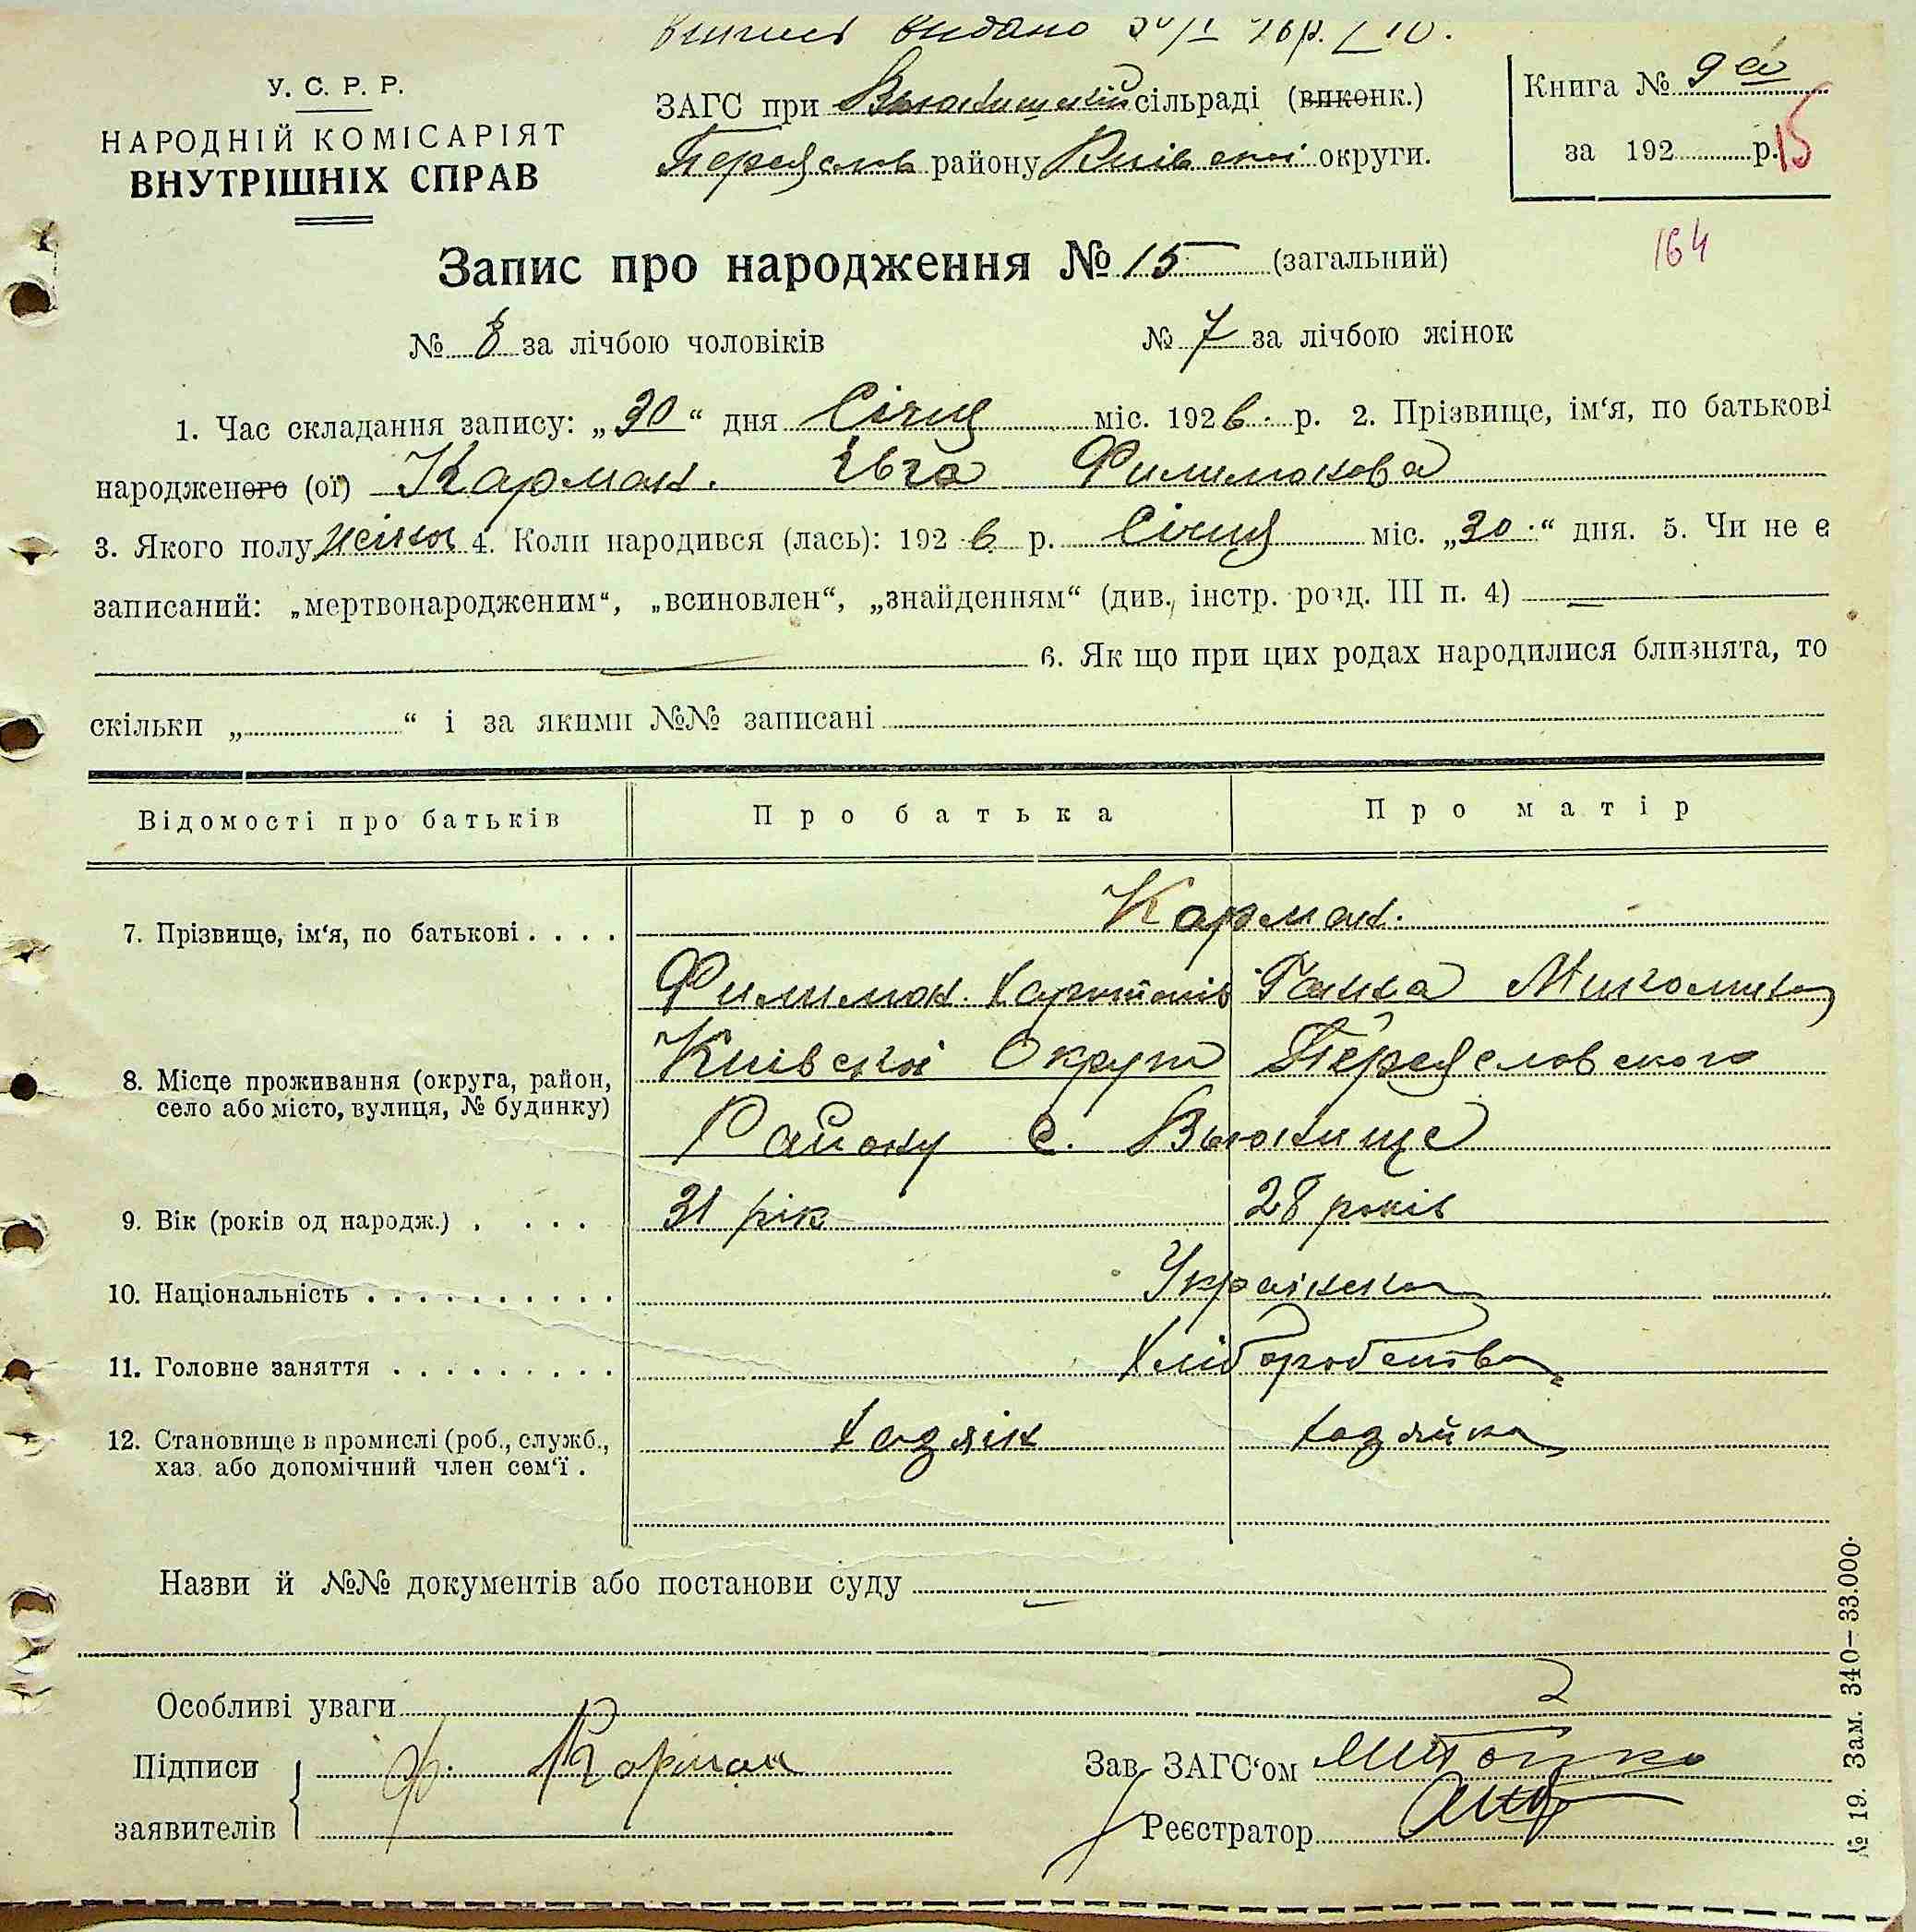 Витись видано 30/I 26 р.
У. С. Р. Р.
НАРОДНІЙ КОМІСАРІЯТ
ВНУТРІШНІХ СПРАВ
ЗАГС при Вьюнищький сільраді (виконк.)
Переяслов району Київської округи.
Книга № 9
за 192 р. 15
164
Запис про народження № 15 (загальний)
№ 8 за лічбою чоловіків № 7 за лічбою жінок
1. Час складання запису: „30“ дня Січня міс. 1926 р. 2. Прізвище, ім‘я, по батькові
народженого (ої) Карман. Ївга Филимонова
3. Якого полу жінка 4. Коли народився (лась): 1926 р. Січня міс. „30“ дня. 5. Чи не є
записаний: „мертвонародженим“, „всиновлен“, „знайденням“ (див. інстр. розд. III п. 4) —
6. Як що при цих родах народилися близнята, то
скільки „ “ і за якими №№ записані
Відомості про батьків Про батька Про матір
7. Прізвище, ім‘я, по батькові . . . . Карман.
Филимон Харитонів Ганна Миколина
8. Місце проживання (округа, район, село або місто, вулиця, № будинку) Київської Округи Переясловского
Району с. Вьюнище
9. Вік (років од народж.) . . . . 31 рік 28 років
10. Національність . . . . . . . . . . Українська
11. Головне заняття . . . . . . . . . Хліборобство
12. Становище в промислі (роб., служб., хаз. або допомічний член сем‘ї . Хазяїн Хазяйка
Назви й №№ документів або постанови суду —
Особливі уваги
Підписи заявителів Ф. Карман
Зав. ЗАГС‘ом
Реєстратор
№ 19. Зам. 340—33.000.